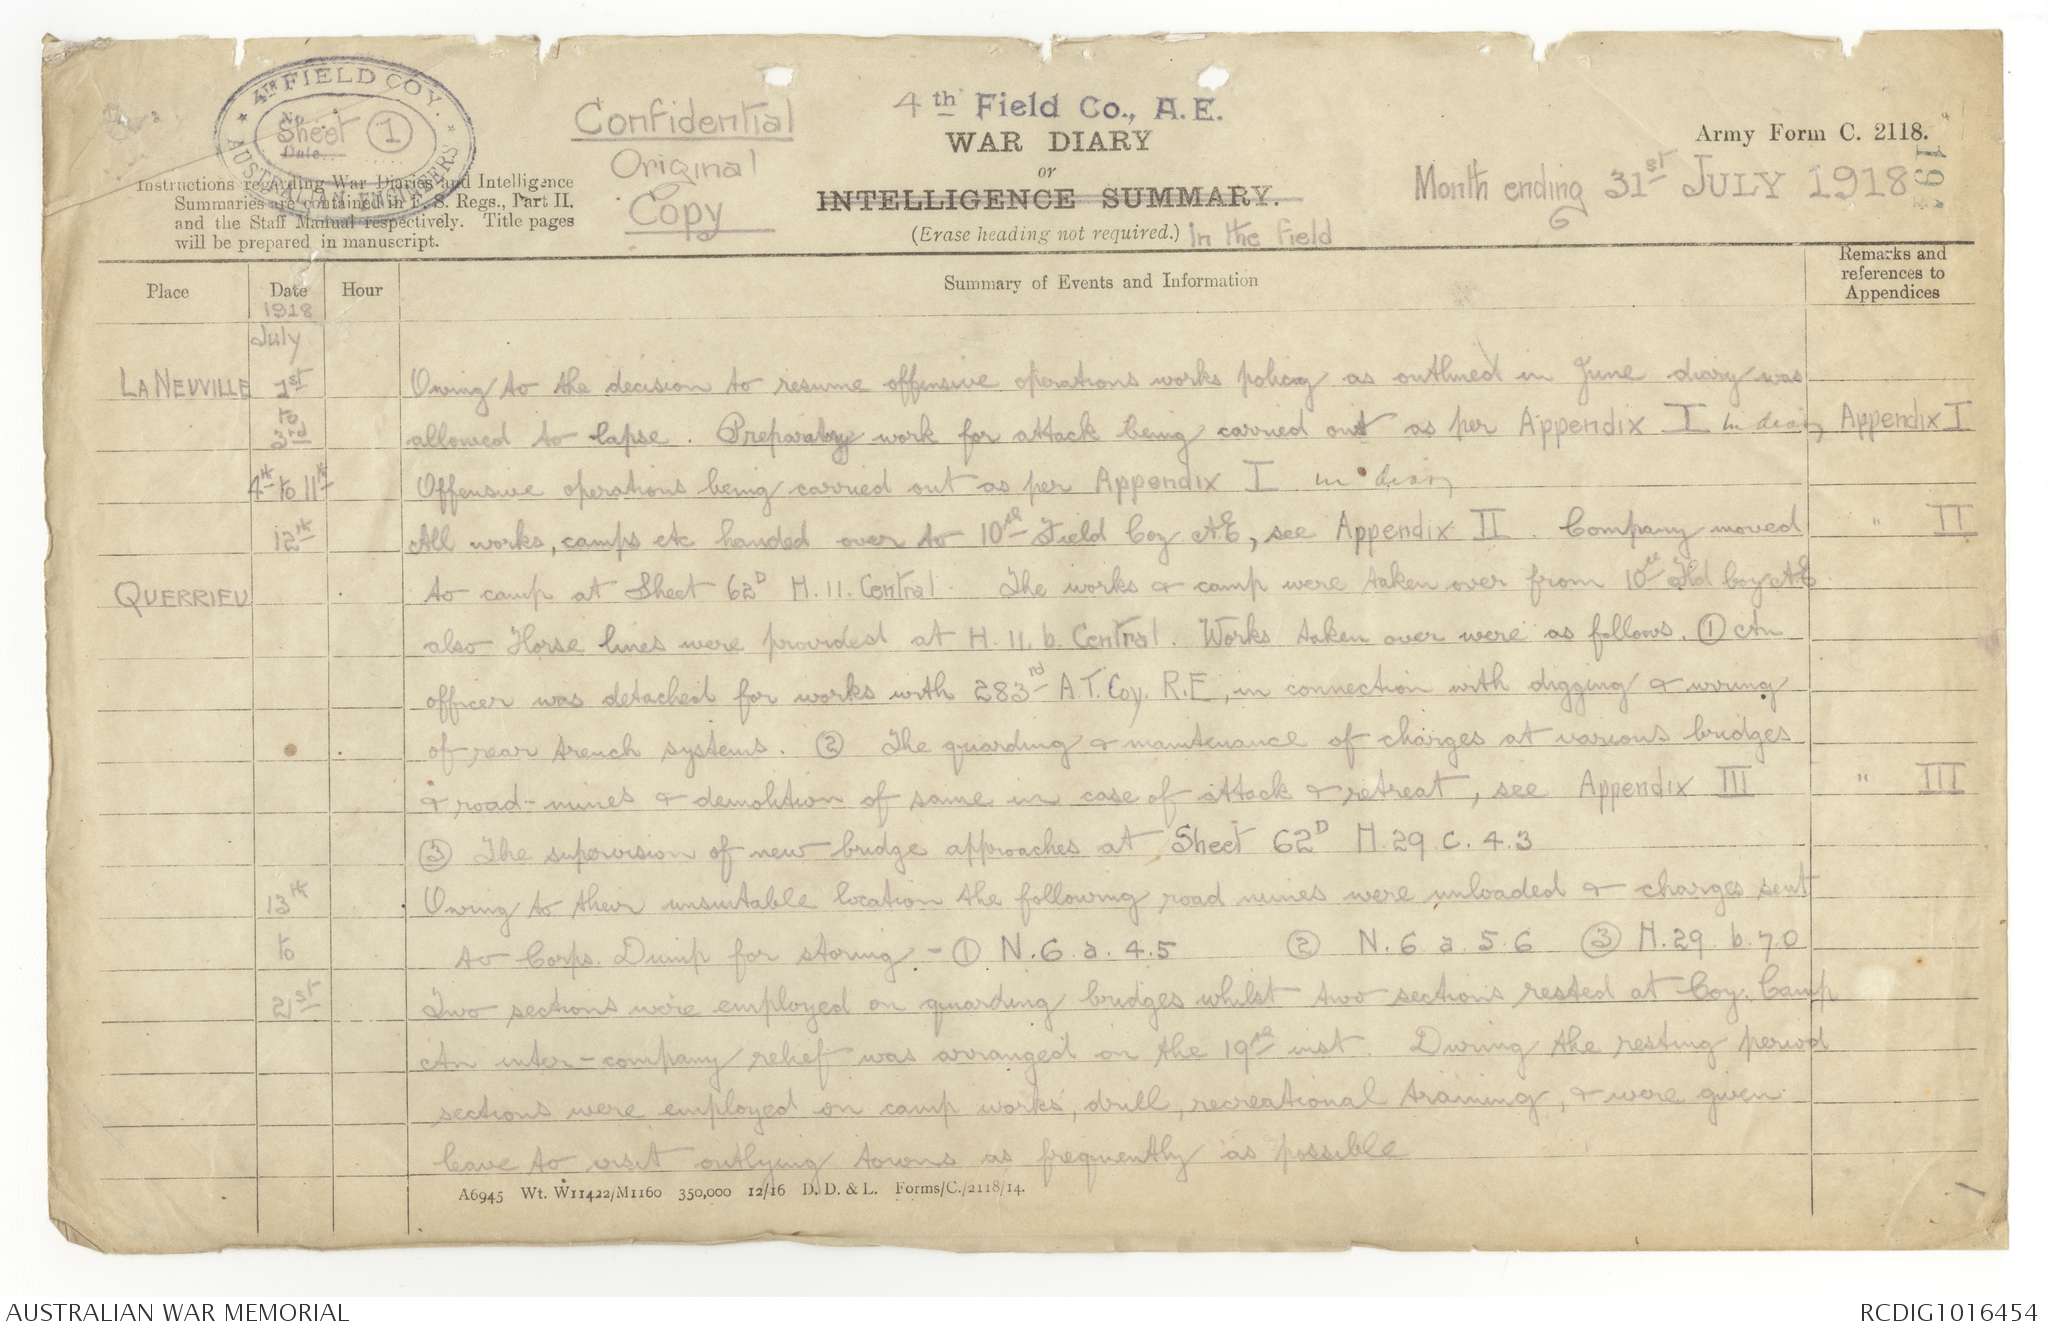 4TH FIELD COY.
AUSTRALIAN ENGINEERS
No.
Sheet 1
Date
Confidential
Original
Copy
4th Field Co., A.E.
WAR DIARY
or
INTELLIGENCE SUMMARY.
(Erase heading not required.) In the field
Army Form C. 2118.
Month ending 31st JULY 1918
Instructions regarding War Diaries and Intelligence
Summaries are contained in F. S. Regs., Part II.
and the Staff Manual respectively. Title pages
will be prepared in manuscript.
Place Date Hour Summary of Events and Information Remarks and references to Appendices
1918
July
LA NEUVILLE 1st Owing to the decision to resume offensive operations works policy as outlined in June diary was
to 3rd allowed to lapse. Preparatory work for attack being carried out as per Appendix I in diary Appendix I
4th to 11th Offensive operations being carried out as per Appendix I in diary
12th All works, camps etc handed over to 10th Field Coy A.E, see Appendix II. Company moved " II
QUERRIEU to camp at Sheet 62D H.11. Central. The works & camp were taken over from 10th Fld Coy A.E
also Horse lines were provided at H.11.b. Central. Works taken over were as follows. ① An
officer was detached for works with 283rd A.T. Coy. R.E, in connection with digging & wiring
of rear trench systems. ② The guarding & maintenance of charges at various bridges
& road-mines & demolition of same in case of attack & retreat, see Appendix III " III
③ The supervision of new bridge approaches at Sheet 62D H.29.c.4.3
13th Owing to their unsuitable location the following road mines were unloaded & charges sent
to to Corps. Dump for storing - ① N.6.a.4.5 ② N.6.a.5.6 ③ H.29.b.7.0
21st Two sections were employed on guarding bridges whilst two sections rested at Coy. Camp
An inter-company relief was arranged on the 19th inst. During the resting period
sections were employed on camp works, drill, recreational training, & were given
leave to visit outlying towns as frequently as possible
A6945 Wt. W11422/M1160 350,000 12/16 D. D. & L. Forms/C./2118/14.
AUSTRALIAN WAR MEMORIAL
RCDIG1016454